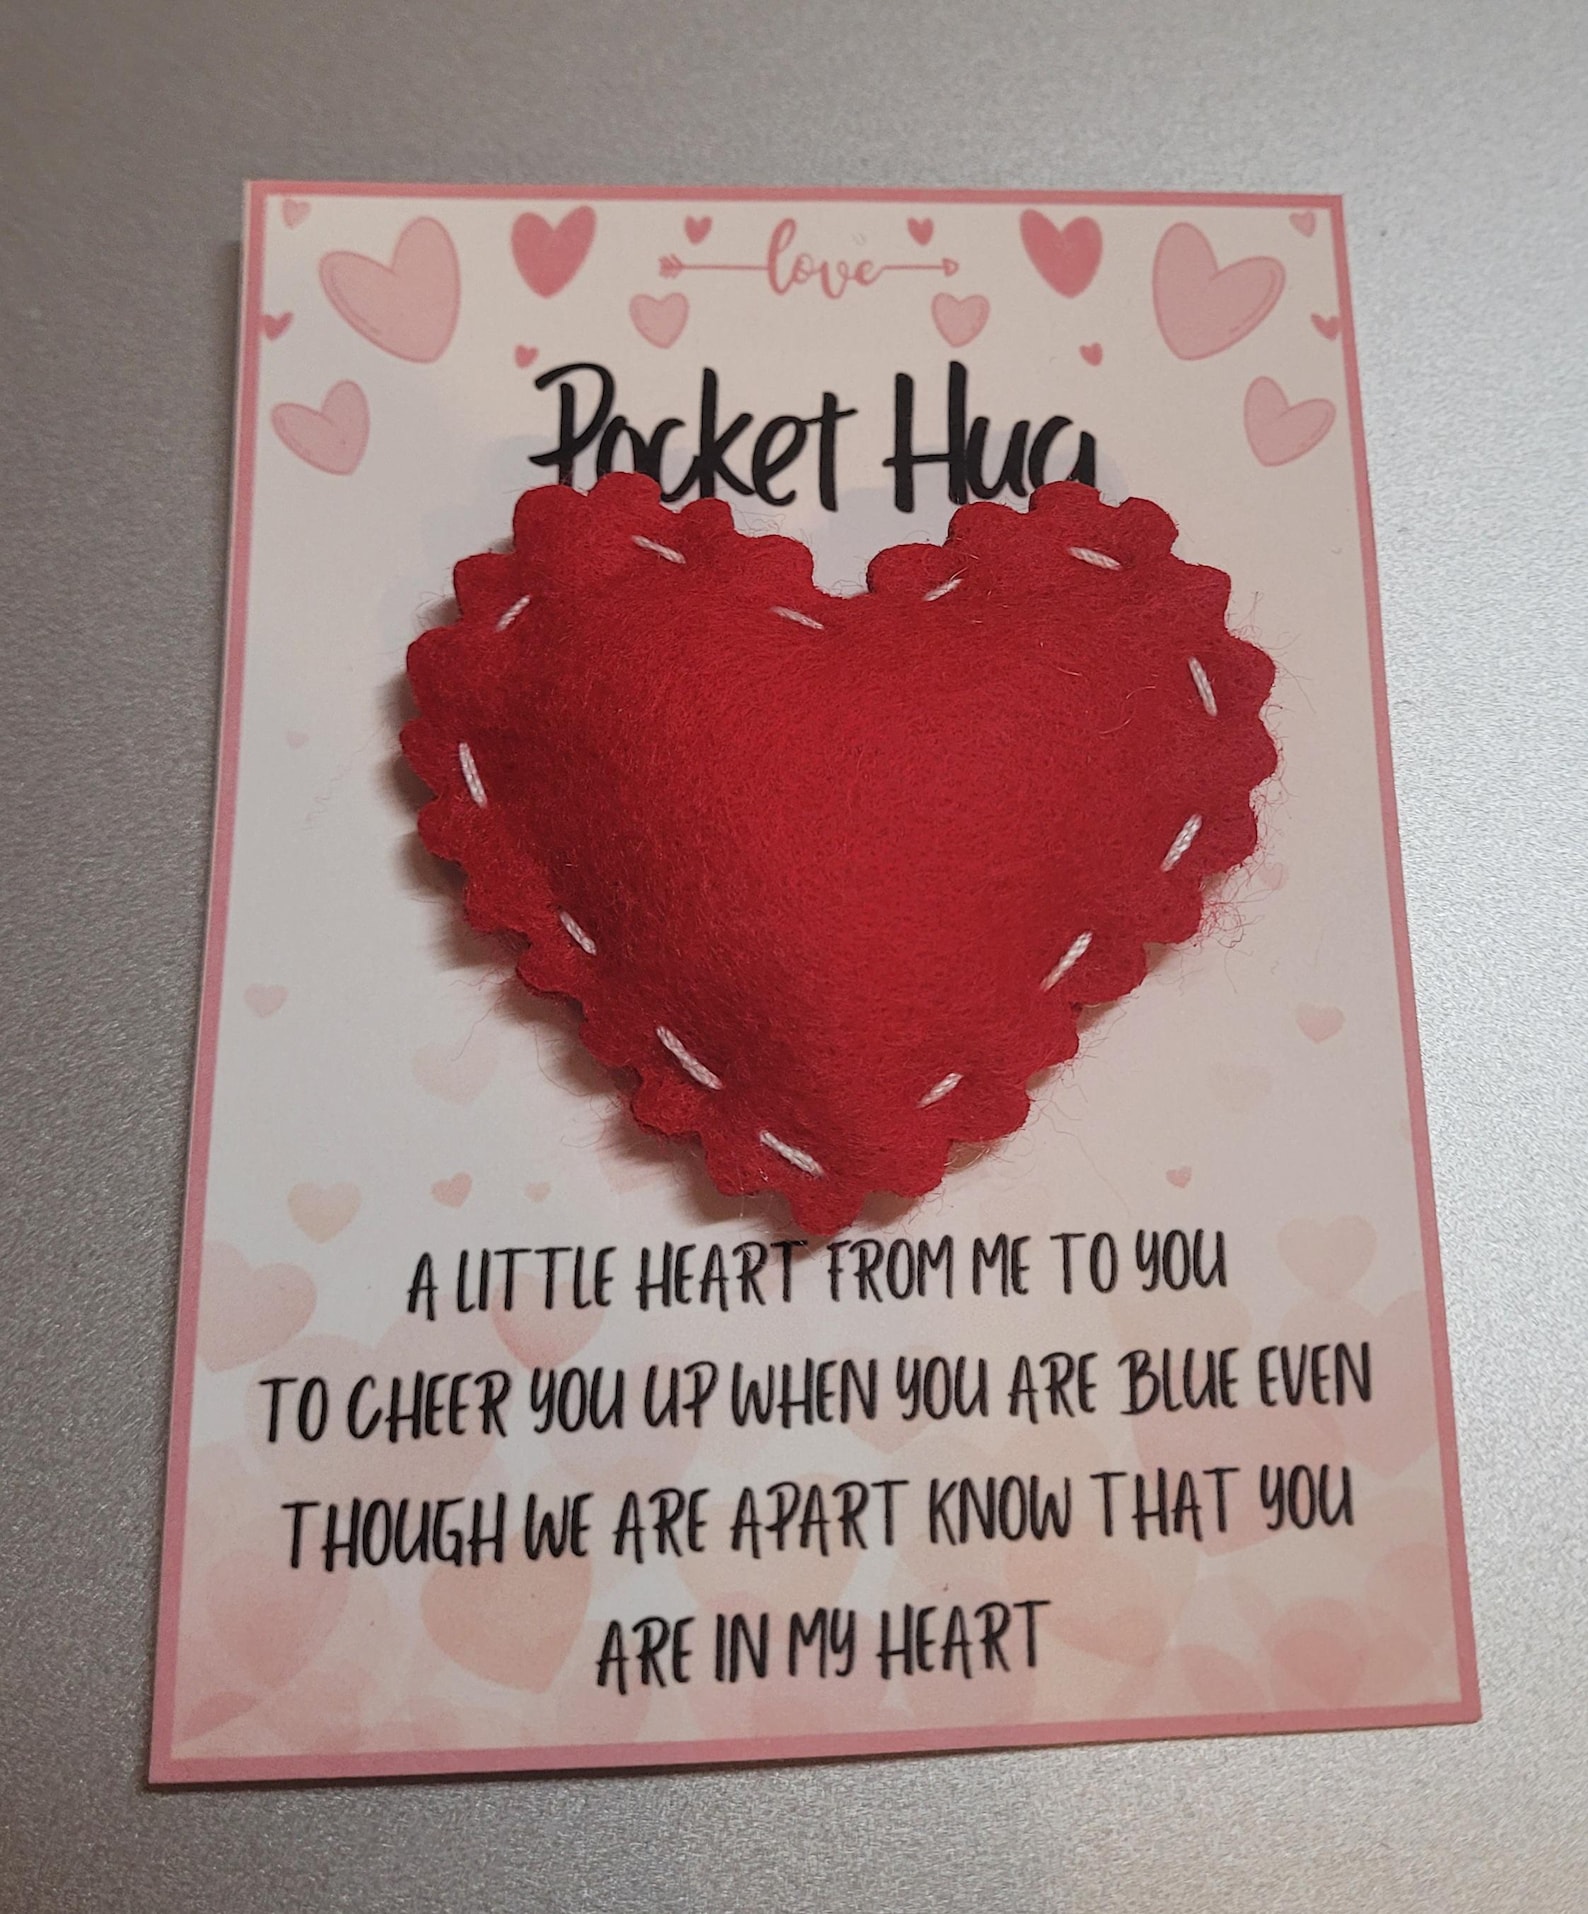 love
Pocket Hug
A LITTLE HEART FROM ME TO YOU
TO CHEER YOU UP WHEN YOU ARE BLUE EVEN
THOUGH WE ARE APART KNOW THAT YOU
ARE IN MY HEART